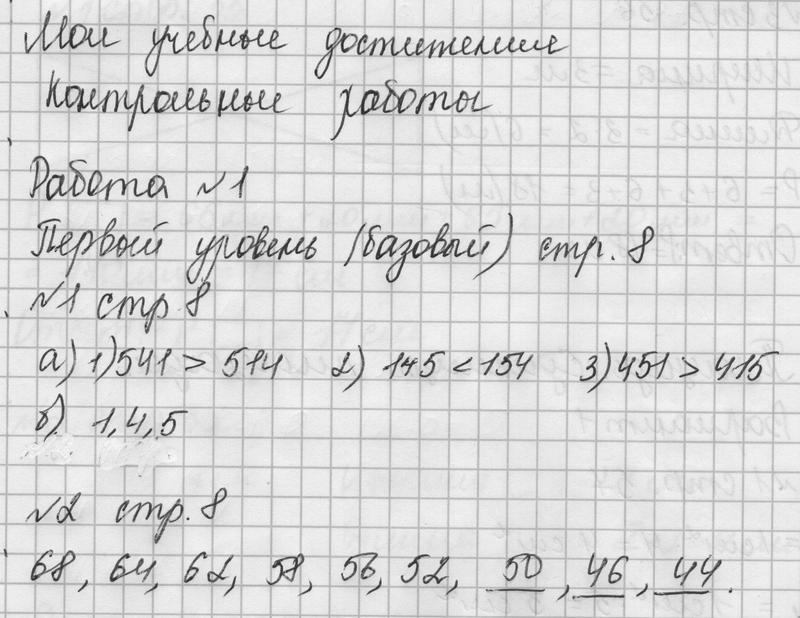 Мои учебные достижения
Контрольные работы
Работа №1
Первый уровень (базовый) стр. 8
№1 стр. 8
а) 1) 541 > 514 2) 145 < 154 3) 451 > 415
б) 1, 4, 5
№2 стр. 8
68, 64, 62, 58, 56, 52, 50, 46, 44.